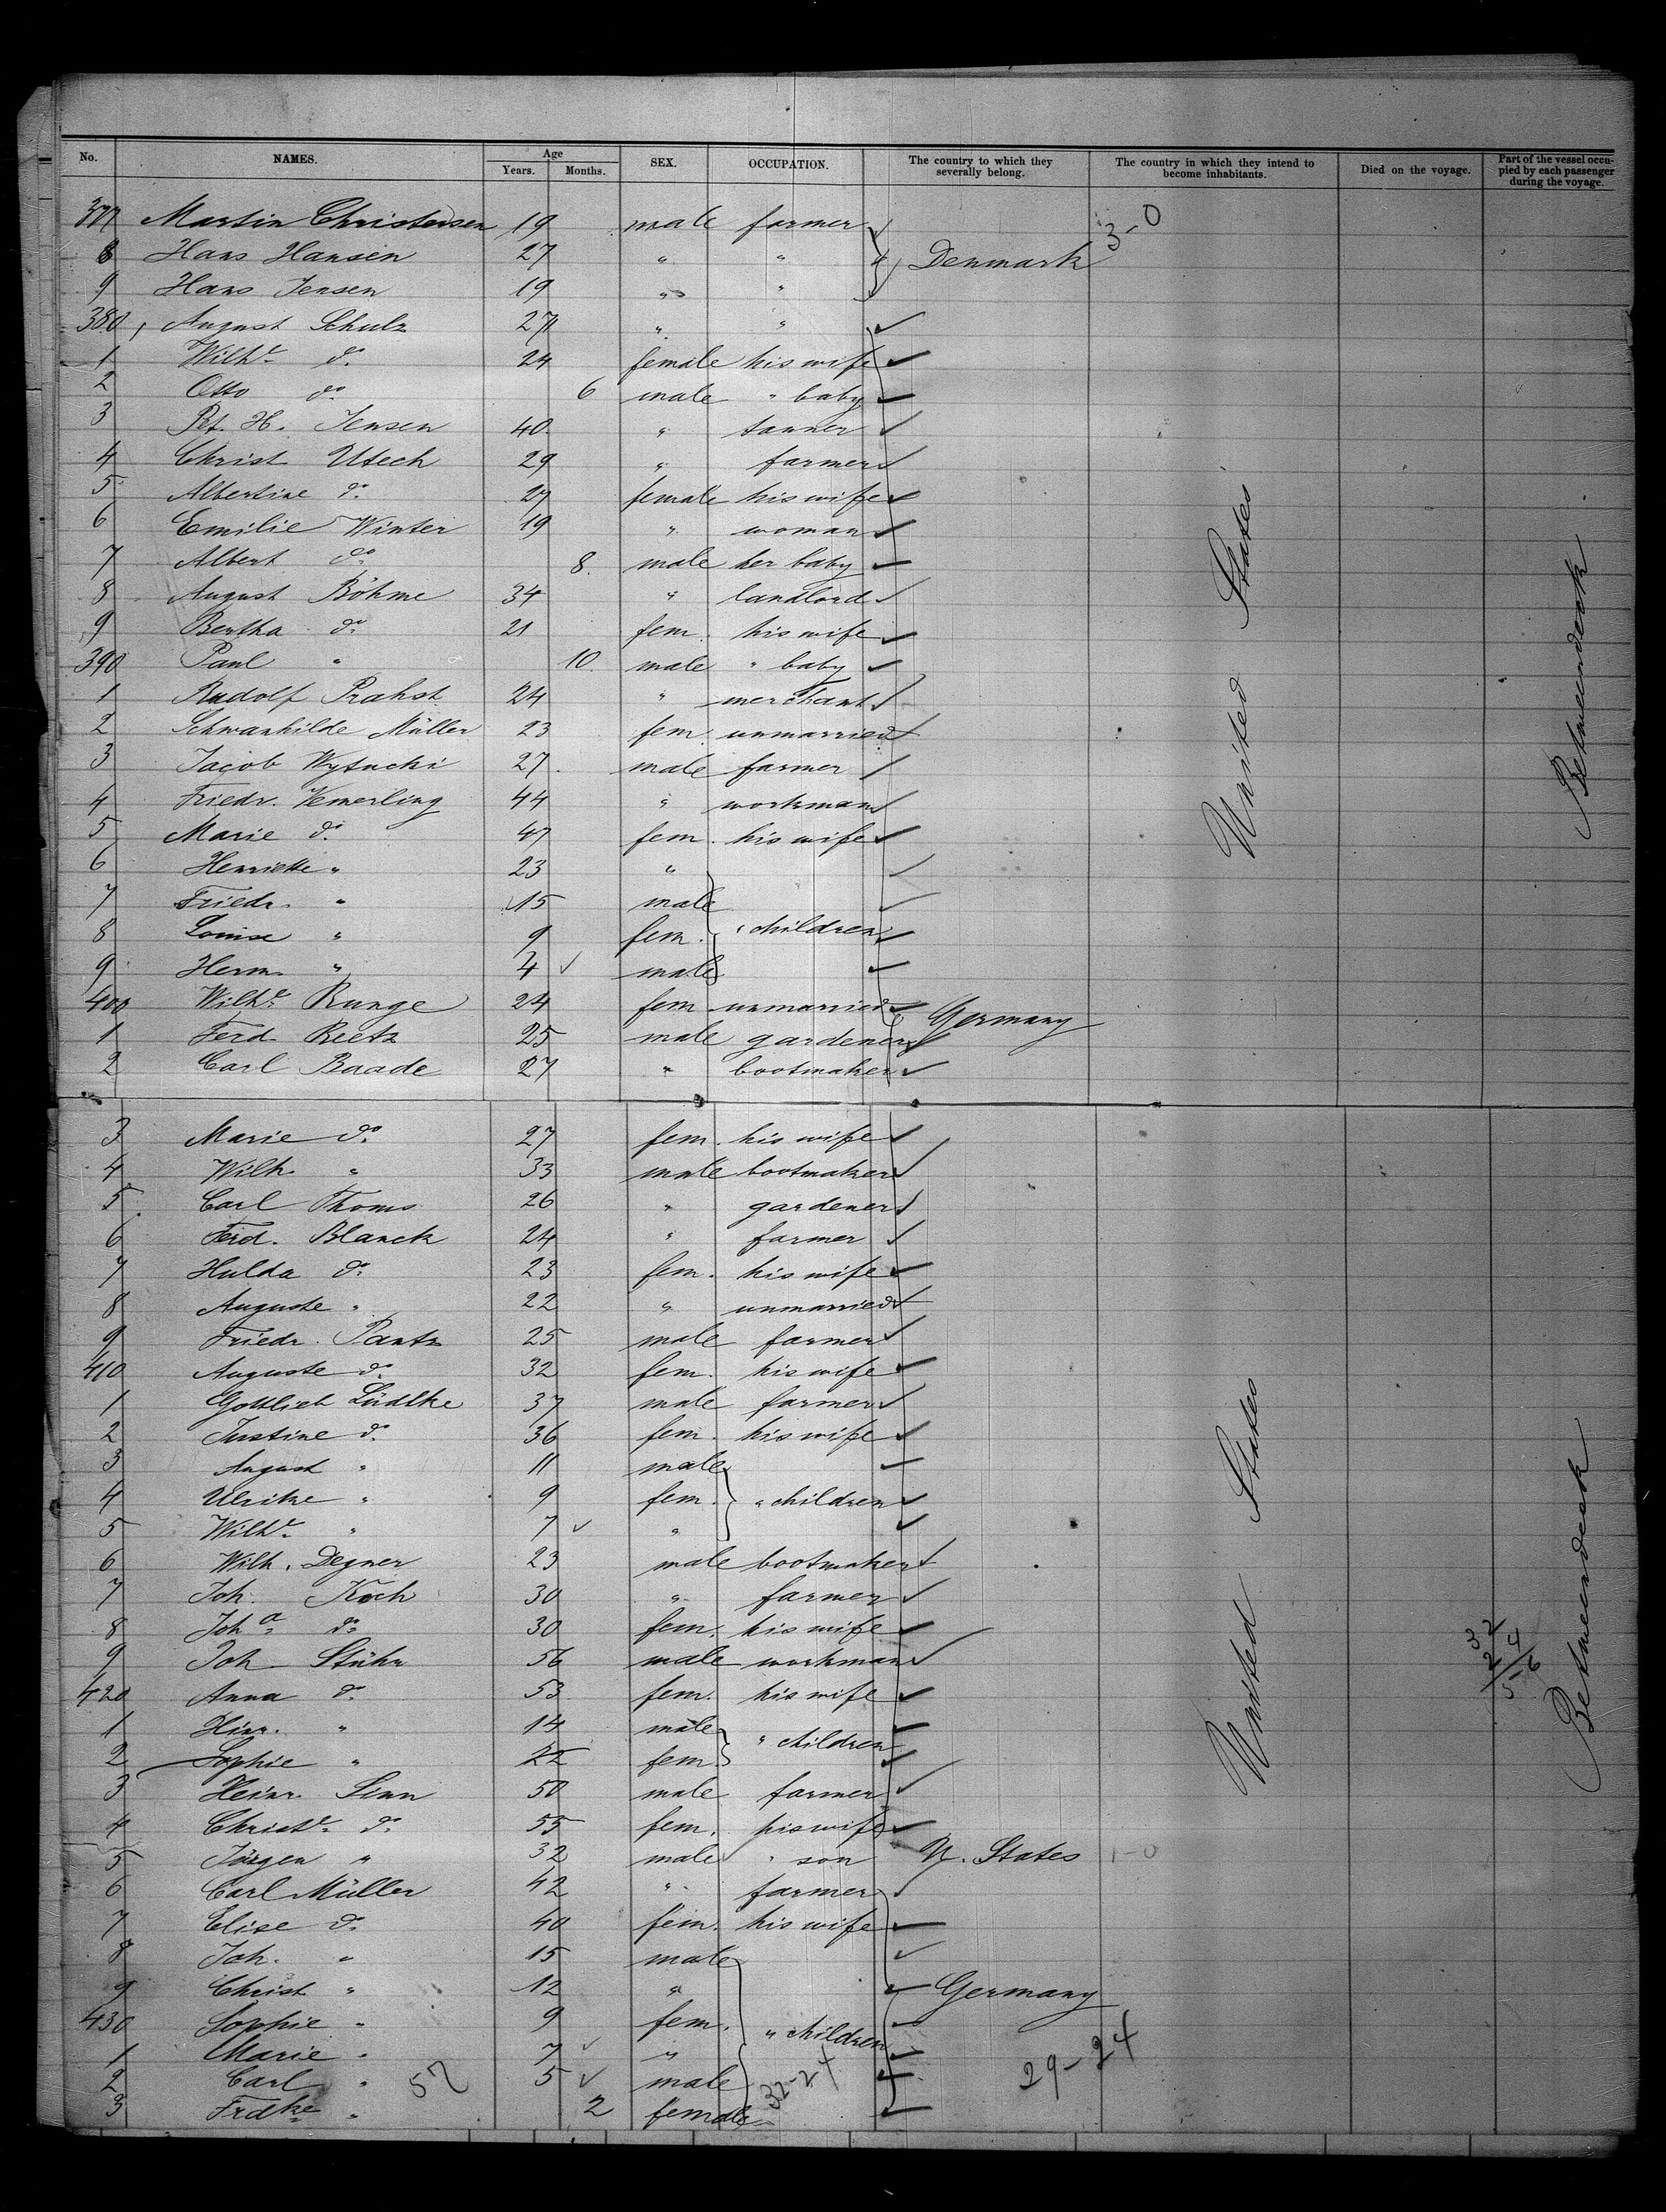 No. NAMES. Age Years. Months. SEX. OCCUPATION. The country to which they severally belong. The country in which they intend to become inhabitants. Died on the voyage. Part of the vessel occupied by each passenger during the voyage.
377 Martin Christensen 19 male farmer 3-0
8 Hans Hansen 27 " " Denmark
9 Hans Jensen 19 " "
380 August Schulz 27 " "
1 Wilhe do 24 female his wife
2 Otto do 6 male " baby
3 Pet. H. Jensen 40 " tanner
4 Christ Utech 29 " farmer
5 Albertine do 27 female his wife
6 Emilie Winter 19 " woman
7 Albert do 8. male her baby
8 August Böhme 34 " landlord
9 Bertha do 21 fem. his wife
390 Paul " 10. male " baby
1 Rudolf Prahst 24 " merchant
2 Schwanhilde Müller 23 fem. unmarried
3 Jacob Wytucki 27. male farmer
4 Friedr. Vemerling 44 " workman
5 Marie do 47 fem. his wife
6 Henriette " 23 "
7 Friedr. " 15 male
8 Louise " 9 fem. " children
9 Herm. " 4 male
400 Wilhe Runge 24 fem unmarried Germany
1 Ferd. Reetz 25 male gardener
2 Carl Baade 27 " bootmaker
United States
Betweendeck
3 Marie do 27 fem. his wife
4 Wilh. " 33 male bootmaker
5 Carl Thoms 26 " gardener
6 Ferd. Blanck 24 " farmer
7 Hulda do 23 fem. his wife
8 Auguste " 22 " unmarried
9 Friedr. Pantz 25 male farmer
410 Auguste do 32 fem. his wife
1 Gottlieb Lüdtke 37 male farmer
2 Justine do 36 fem. his wife
3 August " 11 male
4 Ulrike " 9 fem. " children
5 Wilhe " 7 "
6 Wilh. Degner 23 male bootmaker
7 Joh. Koch 30 " farmer
8 Joha do 30 fem. his wife
9 Joh Stühr 56 male workman
420 Anna do 53 fem. his wife
1 Hinr. " 14 male " children
2 Sophie " 22 fem.
3 Heinr. Sinn 50 male farmer
4 Christe do 55 fem. his wife
5 Jürgen " 32 male " son U. States 1-0
6 Carl Müller 42 " farmer
7 Elise do 40 fem. his wife
8 Joh. " 15 male
9 Christ " 12 " Germany
430 Sophie " 9 fem. " children
1 Marie " 7 "
2 Carl " 5 male
3 Frdke " 2 female
57
32-24
29-24
United States
32
24
56
Betweendeck